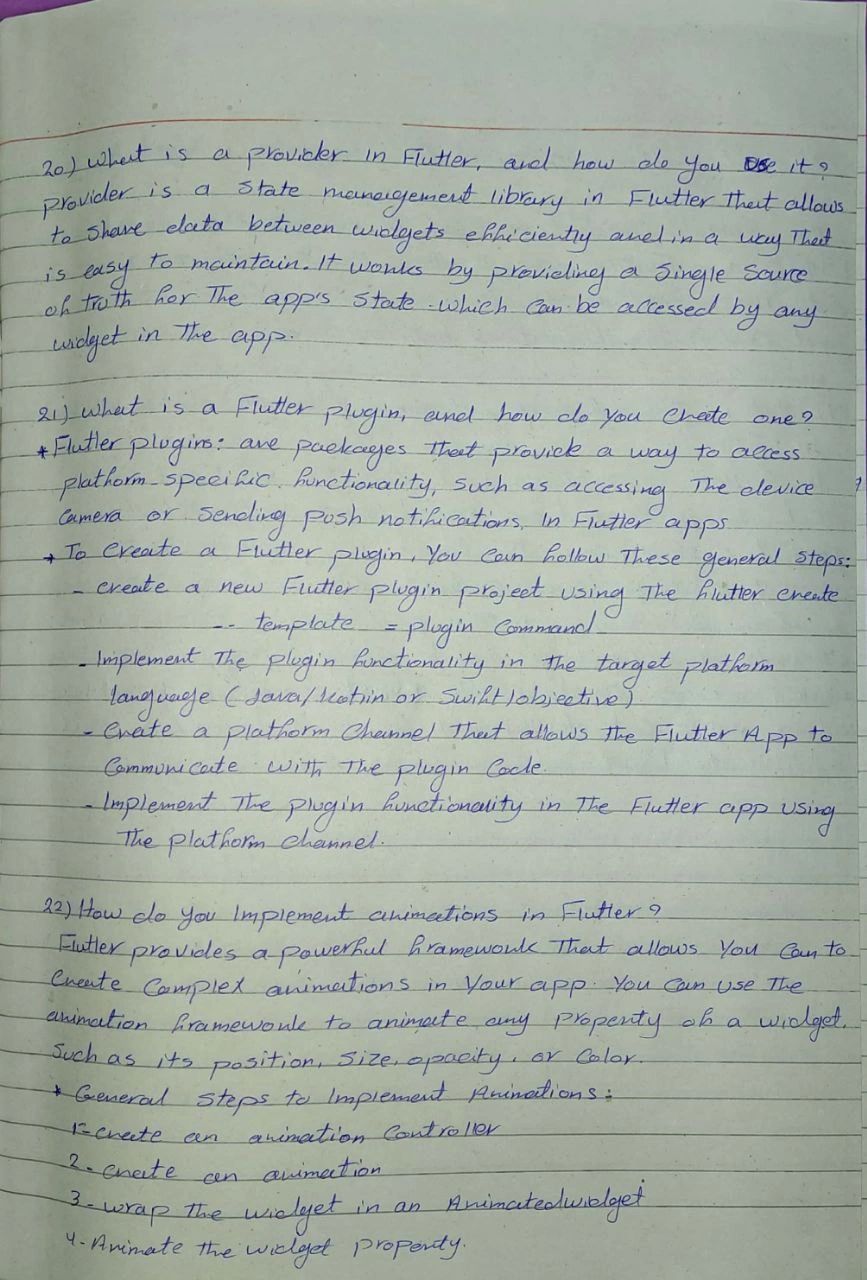 20) What is a provider in Flutter, and how do you use it?
provider is a State management library in Flutter That allows
to Share data between widgets efficiently and in a way That
is easy to maintain. It works by providing a Single Source
of truth for The app's State which Can be accessed by any
widget in The app.
21) What is a Flutter plugin, and how do you Create one?
* Flutter plugins: are packages That provide a way to access
platform-specific functionality, Such as accessing The device
Camera or Sending push notifications, In Flutter apps
* To Create a Flutter plugin, You Can follow These general Steps:
- create a new Flutter plugin project using The flutter create
-- template = plugin Command
- Implement The plugin functionality in The target platform
language (Java/Kotlin or Swift/objective)
- Create a platform Channel That allows The Flutter App to
Communicate with The plugin Code.
- Implement The plugin functionality in The Flutter app using
The platform channel.
22) How do you Implement animations in Flutter?
Flutter provides a powerful framework That allows You Can to
Create Complex animations in Your app. You Can use The
animation framework to animate any property of a widget,
Such as its position, Size, opacity, or Color.
* General Steps to Implement Animations:
1- create an animation Controller
2- create an animation
3- wrap The widget in an Animatedwidget
4- Animate The widget property.